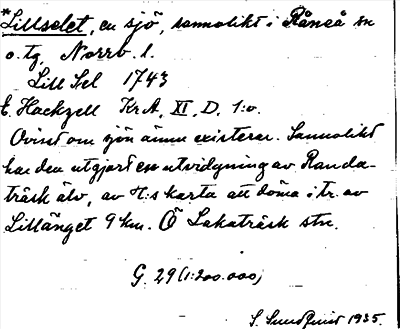 *Lillselet, en sjö, sannolikt i Råneå sn
o. tg, Norrb. l.
Lill Sel 1743
E. Hackzell KrA, XI, D, 1:o.
Ovisst om sjön ännu existerar. Sannolikt
har den utgjort en utvidgning av Randa-
träsk älv, av H:s karta att döma i tr. av
Lillänget 9 km. Ö Lakaträsk stn.
G. 29 (1:200.000)
S. Sundquist 1935.